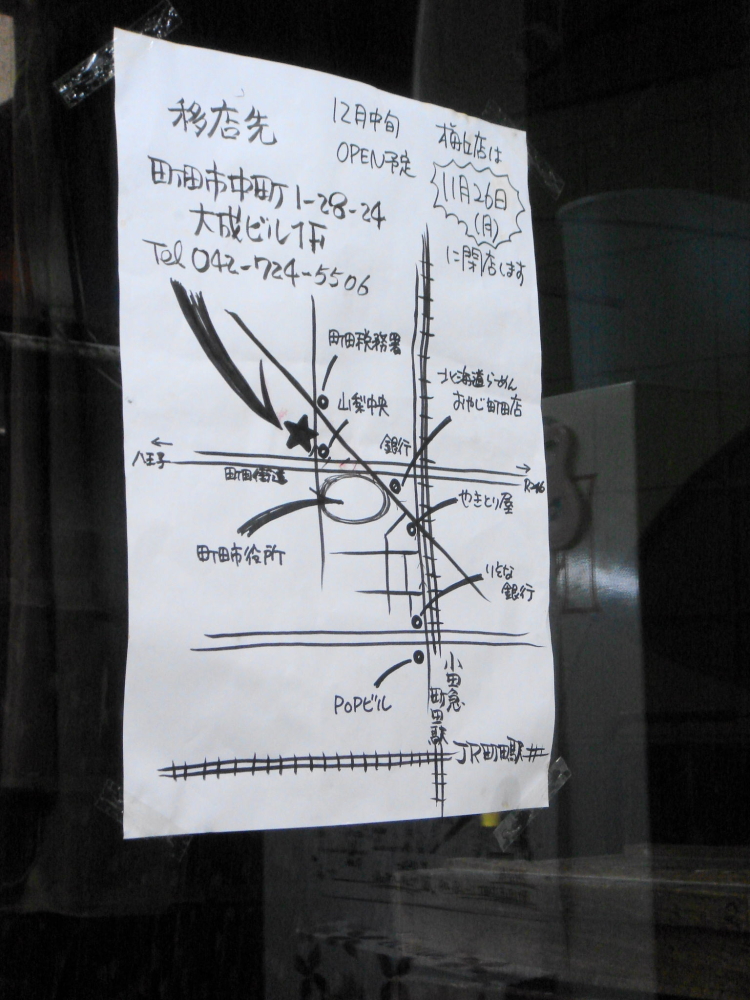 移店先
12月中旬
OPEN予定
梅丘店は
11月26日
(月)
に閉店します
町田市中町1-28-24
大成ビル1F
Tel 042-724-5506
町田税務署
山梨中央
銀行
北海道らーめん
おやじ町田店
←
八王子
町田街道
→
R246
やきとり屋
町田市役所
りそな
銀行
小田急
町田駅
POPビル
JR町田駅